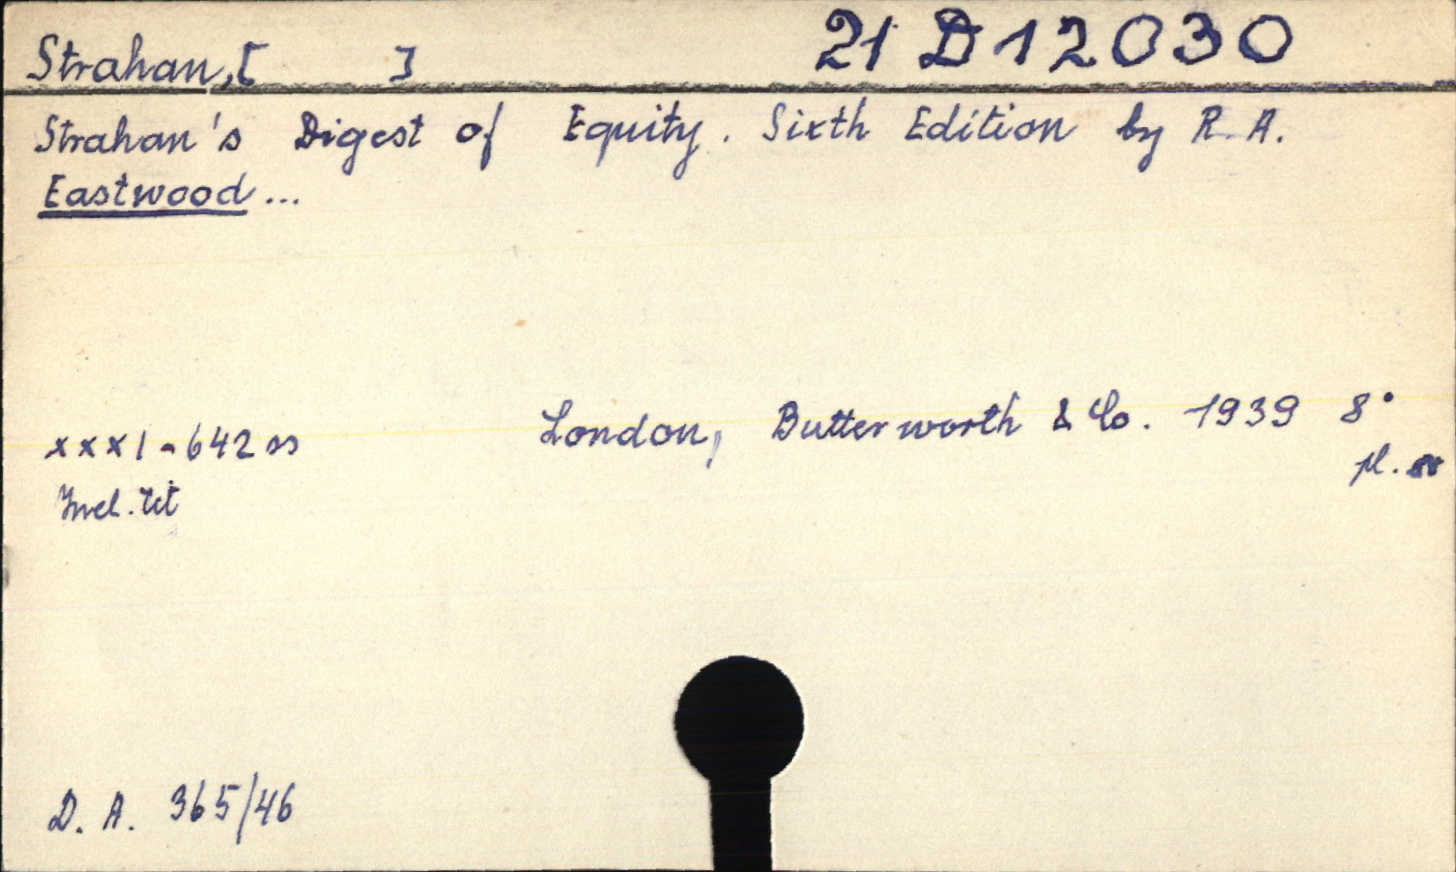 Strahan, [ ] 21 D 12030
Strahan's Digest of Equity. Sixth Edition by R. A.
Eastwood...
London, Butterworth & Co. 1939 8°
xxxi-642 ss pl.
tit
D. A. 365/46